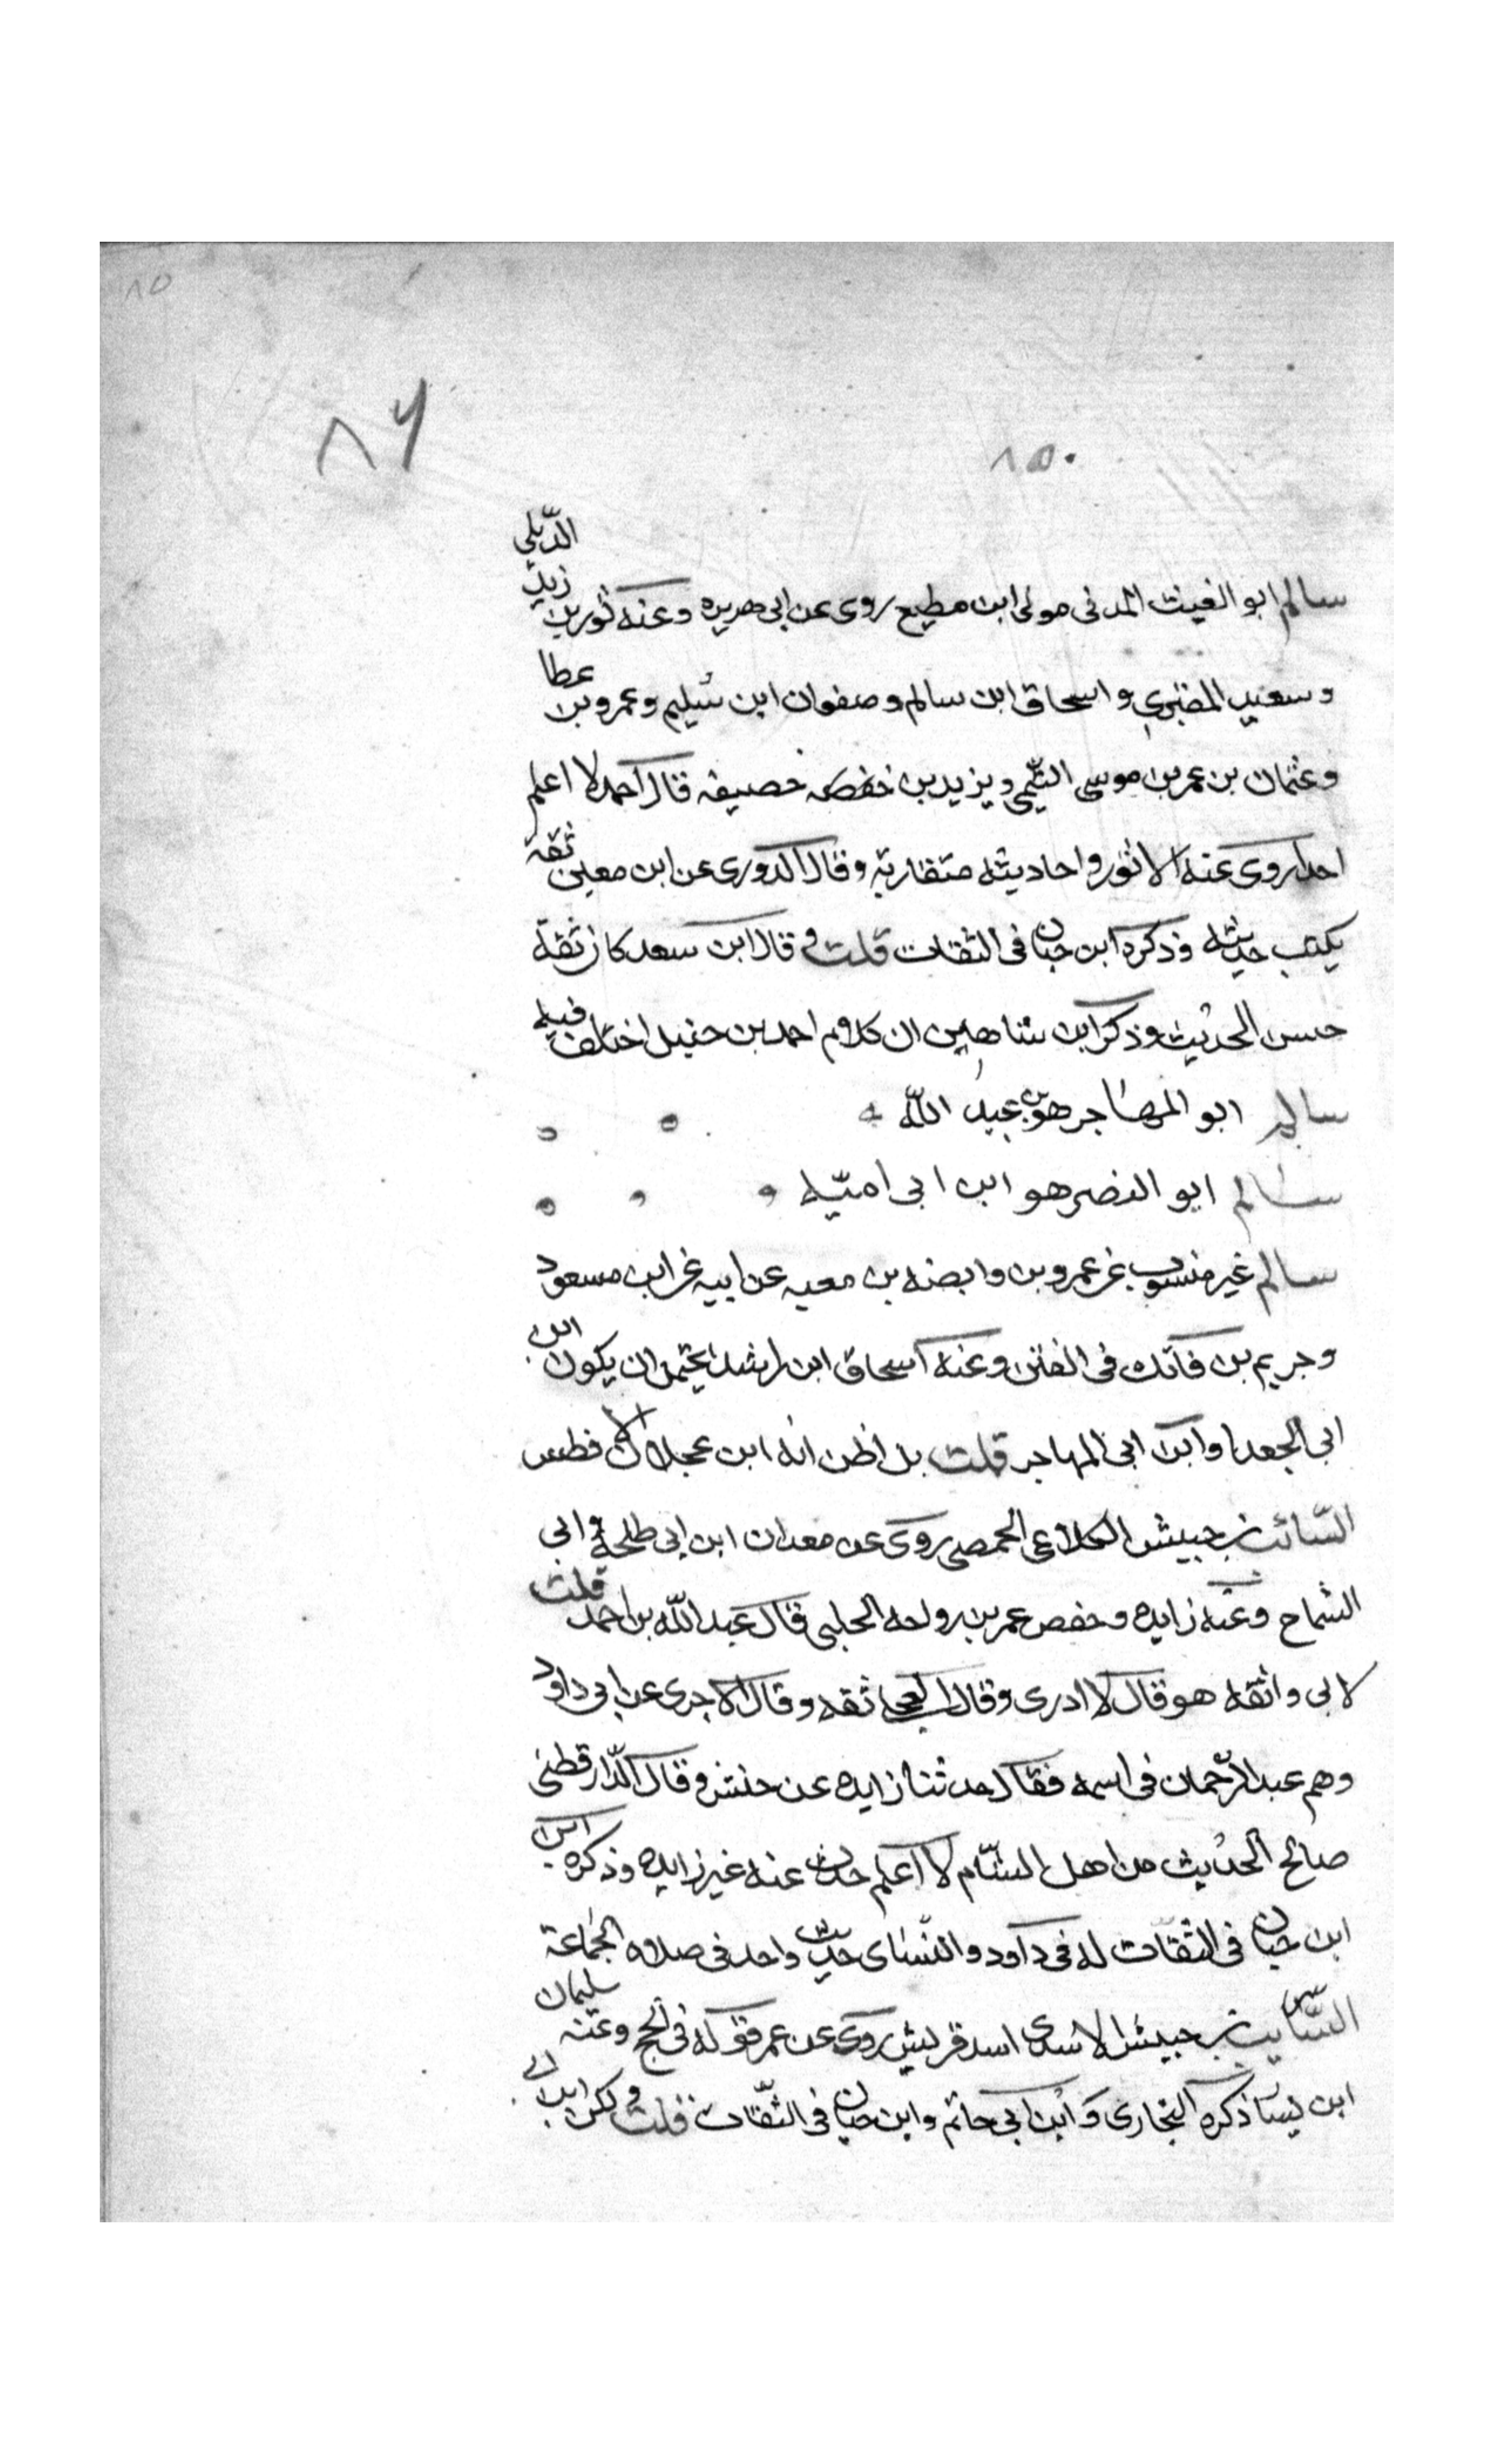 ٨٥
٨٦
٨٥٠
سالم ابو الغيث المدنى مولى ابن مطيع روى عن ابى هريره وعنه ثور بن زيد الدّيلي
وسعيد المقبري واسحاق ابن سالم وصفوان ابن سُليم وعمرو بن عطا
وعثمان بن عمر بن موسى التيّمي ويزيد بن خفصه خصيفه قال احمد لا اعلم
احدا روى عنه الا ثور واحاديثه متقاربة وقال الدورى عن ابن معين ثقة
يكتب حديثه وذكره ابن حبان فى الثقات قلت و قال ابن سعد كان ثقة
حسن الحديث وذكر ابن شاهين ان كلام احمد بن حنبل اختلف فيه
سالم ابو المهاجر هو بن عبد اللّه
سالم ابو النضر هو ابن ابى اميّه
سالم غير منسوب عن عمرو بن وابصه بن معبه عن ابيه عن ابن مسعود
وجريم بن فاتك فى الفتن وعنه اسحاق ابن راشد يحتمل ان يكون ابن
ابى الجعد او ابن ابى المهاجر قلت بل اظن انه ابن عجلان الافطس
السّائب بن حبيش الكلاعى الحمصى روى عن معدان ابن ابى طلحة وابى
الشماخ وعنه زايده وحفص عمر بن رواحه الحلبى قال عبد اللّه بن احمد قلت
لابى واثقه هو قال لا ادرى وقال العجلى ثقه وقال الاجرى عن ابى داود
وهم عبد الرّحمان فى اسمه فقال حدثنا زايده عن حنش وقال الدّارقطنى
صالح الحديث من اهل الشّام لا اعلم حدث عنه غير زايده وذكره ابن
ابن حبان فى الثقات له فى داود والنّسَاى حديث واحد فى صلاه الجُماعة
السّايب بن حبيش الاسدى اسد قريش روى عن عمر قوله فى الحج وعنه سليمان
ابن يسَا ذكره البخارى وَابن ابي حاتم وابن حبان فى الثّقات قلت و ابن